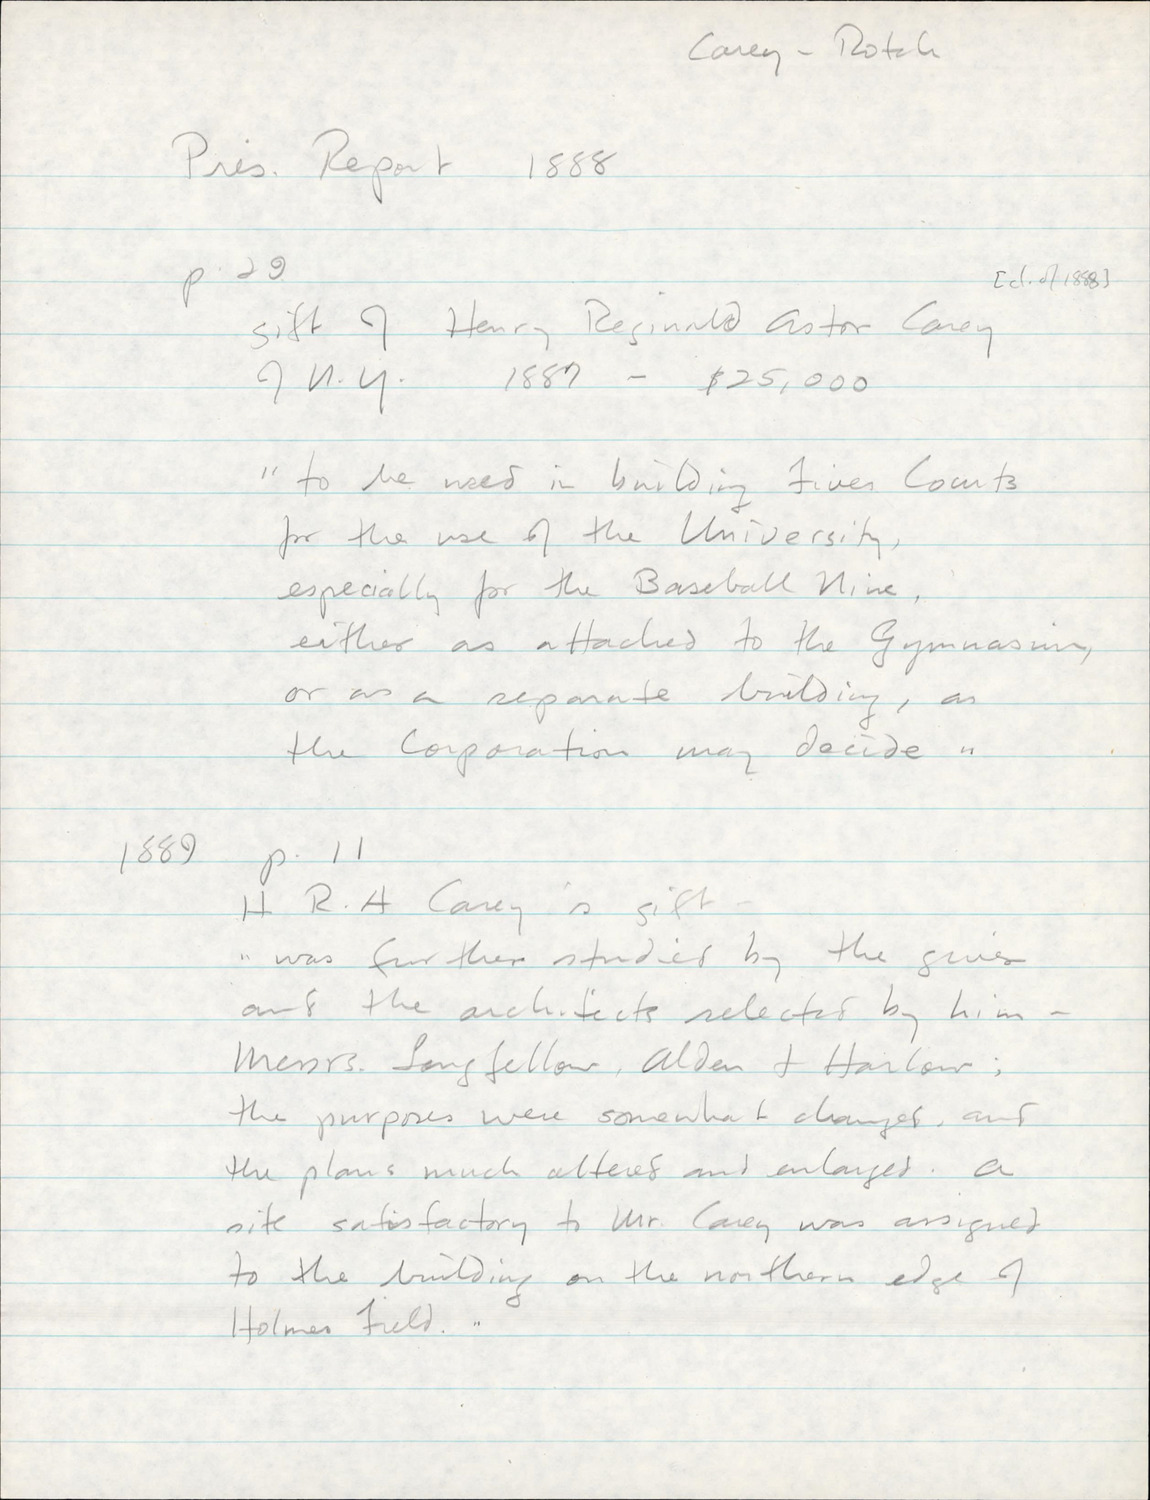 Carey - Rotch
Pres. Report 1888
p. 29
[cl. of 1888]
gift of Henry Reginald Astor Carey
of N.Y. 1887 - $25,000
"to be used in building Fives Courts
for the use of the University,
especially for the Baseball Nine,
either as attached to the Gymnasium,
or as a separate building, as
the Corporation may decide"
1889 p. 11
H R. A Carey's gift -
"was further studied by the giver
and the architects selected by him -
Messrs. Longfellow, Alden + Harlow;
the purposes were somewhat changed, and
the plans much altered and enlarged. A
site satisfactory to Mr. Carey was assigned
to the building on the northern edge of
Holmes Field."